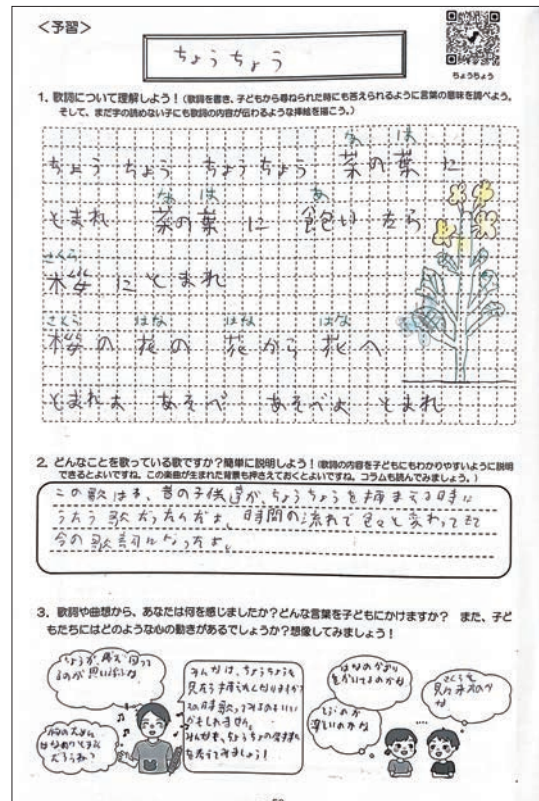 <予習>
ちょうちょう
ちょうちょう
1. 歌詞について理解しよう！(歌詞を書き、子どもから尋ねられた時にも答えられるように言葉の意味を調べよう。
そして、まだ字の読めない子にも歌詞の内容が伝わるような挿絵を描こう。)
な は
ちょう ちょう ちょう ちょう 菜の葉 に
な は あ
とまれ 菜の葉 に 飽い たら
さくら
桜 に とまれ
さくら はな はな はな
桜 の 花の 花 から 花 へ
とまれよ あそべ あそべよ とまれ
2. どんなことを歌っている歌ですか？簡単に説明しよう！(歌詞の内容を子どもにもわかりやすいように説明
できるとよいですね。この楽曲が生まれた背景も押さえておくとよいですね。コラムも読んでみましょう。)
この歌はね、昔の子供達が、ちょうちょうを捕まえる時に
うたう歌だったんだよ。時間の流れで色々と変わってきて
今の歌詞になったよ。
3. 歌詞や曲想から、あなたは何を感じましたか？どんな言葉を子どもにかけますか？ また、子ど
もたちにはどのような心の動きがあるでしょうか？想像してみましょう！
ちょうが
るのが思い浮ぶな
みんなは、ちょうちょうを
見たら捕まえたくなりますか？
その時歌ってみるのもいい
かもしれません。
みんなも、ちょうちょの気持ち
になってみましょう！
はなのかおり
をかいでるのかな
とぶのが
楽しいのかな
さくらを